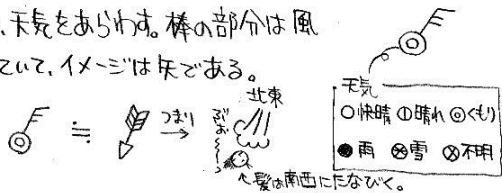 、天気をあらわす。棒の部分は風
ていて、イメージは矢である。
≒ つまり → 北東
ぶおー〜〜
↑髪は南西にたなびく。
天気
○快晴 ⦶晴れ ◎くもり
●雨 ⊗雪 ⊗不明